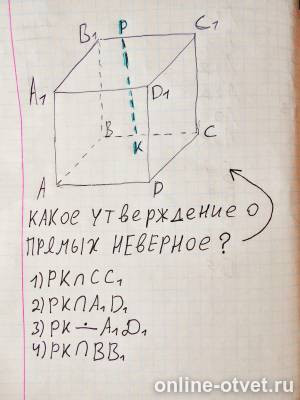 B₁ P C₁
A₁ D₁
B K C
A D
КАКОЕ УТВЕРЖДЕНИЕ О
ПРЯМЫХ НЕВЕРНОЕ?
1) PK∩CC₁
2) PK∩A₁D₁
3) PK ∸ A₁D₁
4) PK∩BB₁
online-otvet.ru